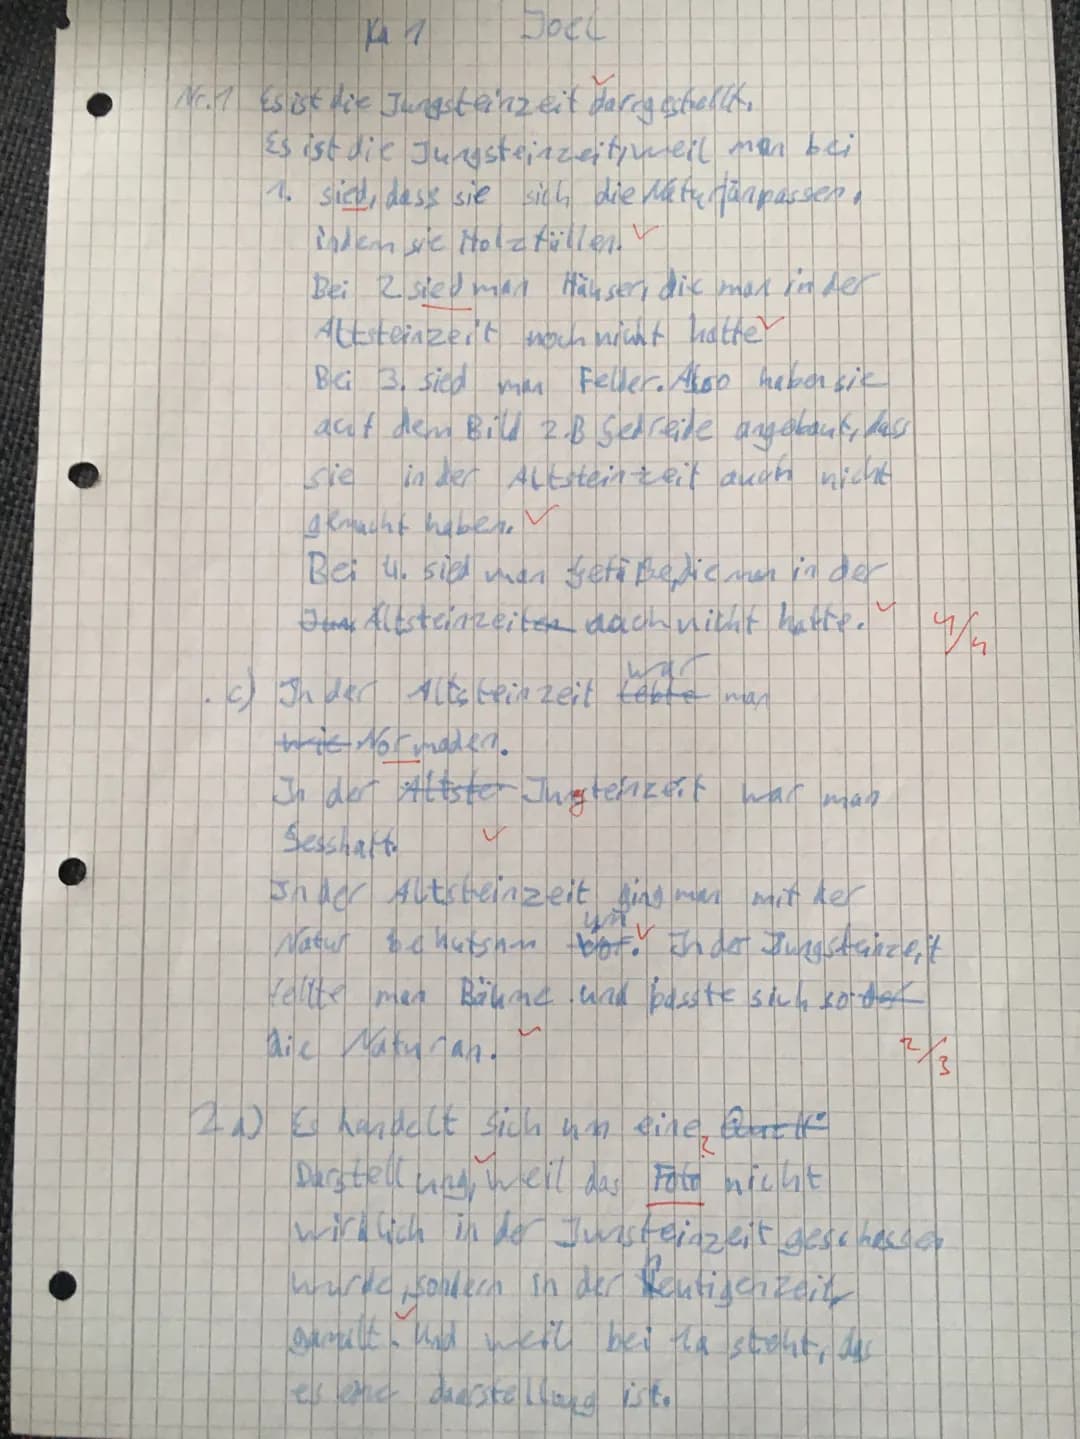 KA 1 JOEL
Nr.1 Es ist die Jungsteinzeit dargestellt.
Es ist die Jungsteinzeit, weil man bei
1. sied, dass sie sich die Natur anpassen,
indem sie Holz fällen.
Bei 2 sied man Häuser, die man in der
Altsteinzeit noch nicht hatte
Bei 3. sied man Felder. Also haben sie
auf dem Bild z.B Gedreide angebaut, dass
sie in der Altsteinzeit auch nicht
gemacht haben.
Bei 4. sied man Gefäße, die man in der
Altsteinzeit noch nicht hatte. 4/4
c) In der Altsteinzeit war man
Normaden.
In der Jungteinzeit war man
Sesshaft.
In der Altsteinzeit ging man mit der
Natur behutsam um. In der Jungsteinzeit
fellte man Bäume und passte sich so
die Natur an. 2/3
2a) Es handelt sich um eine
Darstellung, weil das Foto nicht
wirklich in der Jungsteinzeit geschossen
wurde, sondern in der heutigen Zeit
gamalt. Und weil bei 1a steht, das
es eine daarstellung ist.